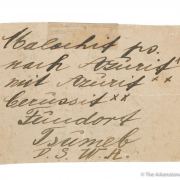 Malachit ps.
nach Azurit
mit Azurit xx
Cerussit xx
Fundort
Tsumeb
D. S. W. A.
© The Arkenstone